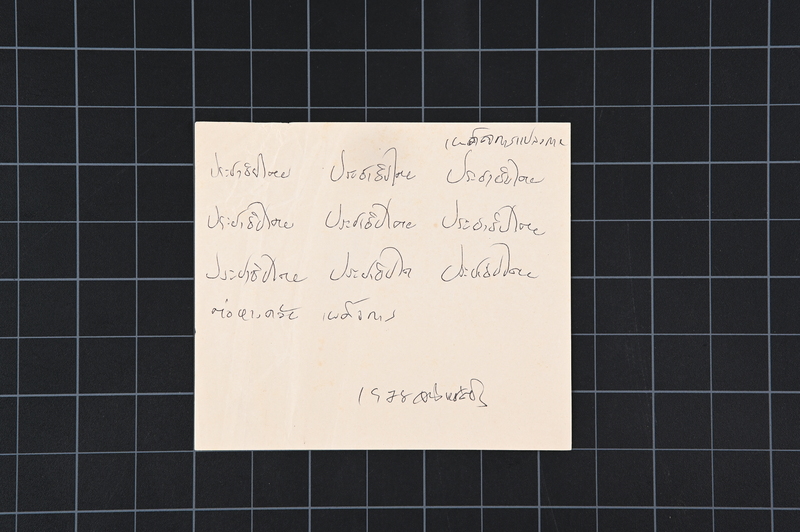 เผด็จการแปลงกาย
ประชาธิปไตย ประชาธิปไตย ประชาธิปไตย
ประชาธิปไตย ประชาธิปไตย ประชาธิปไตย
ประชาธิปไตย ประชาธิปไต ประชาธิปไตย
เผด็จการ
1978